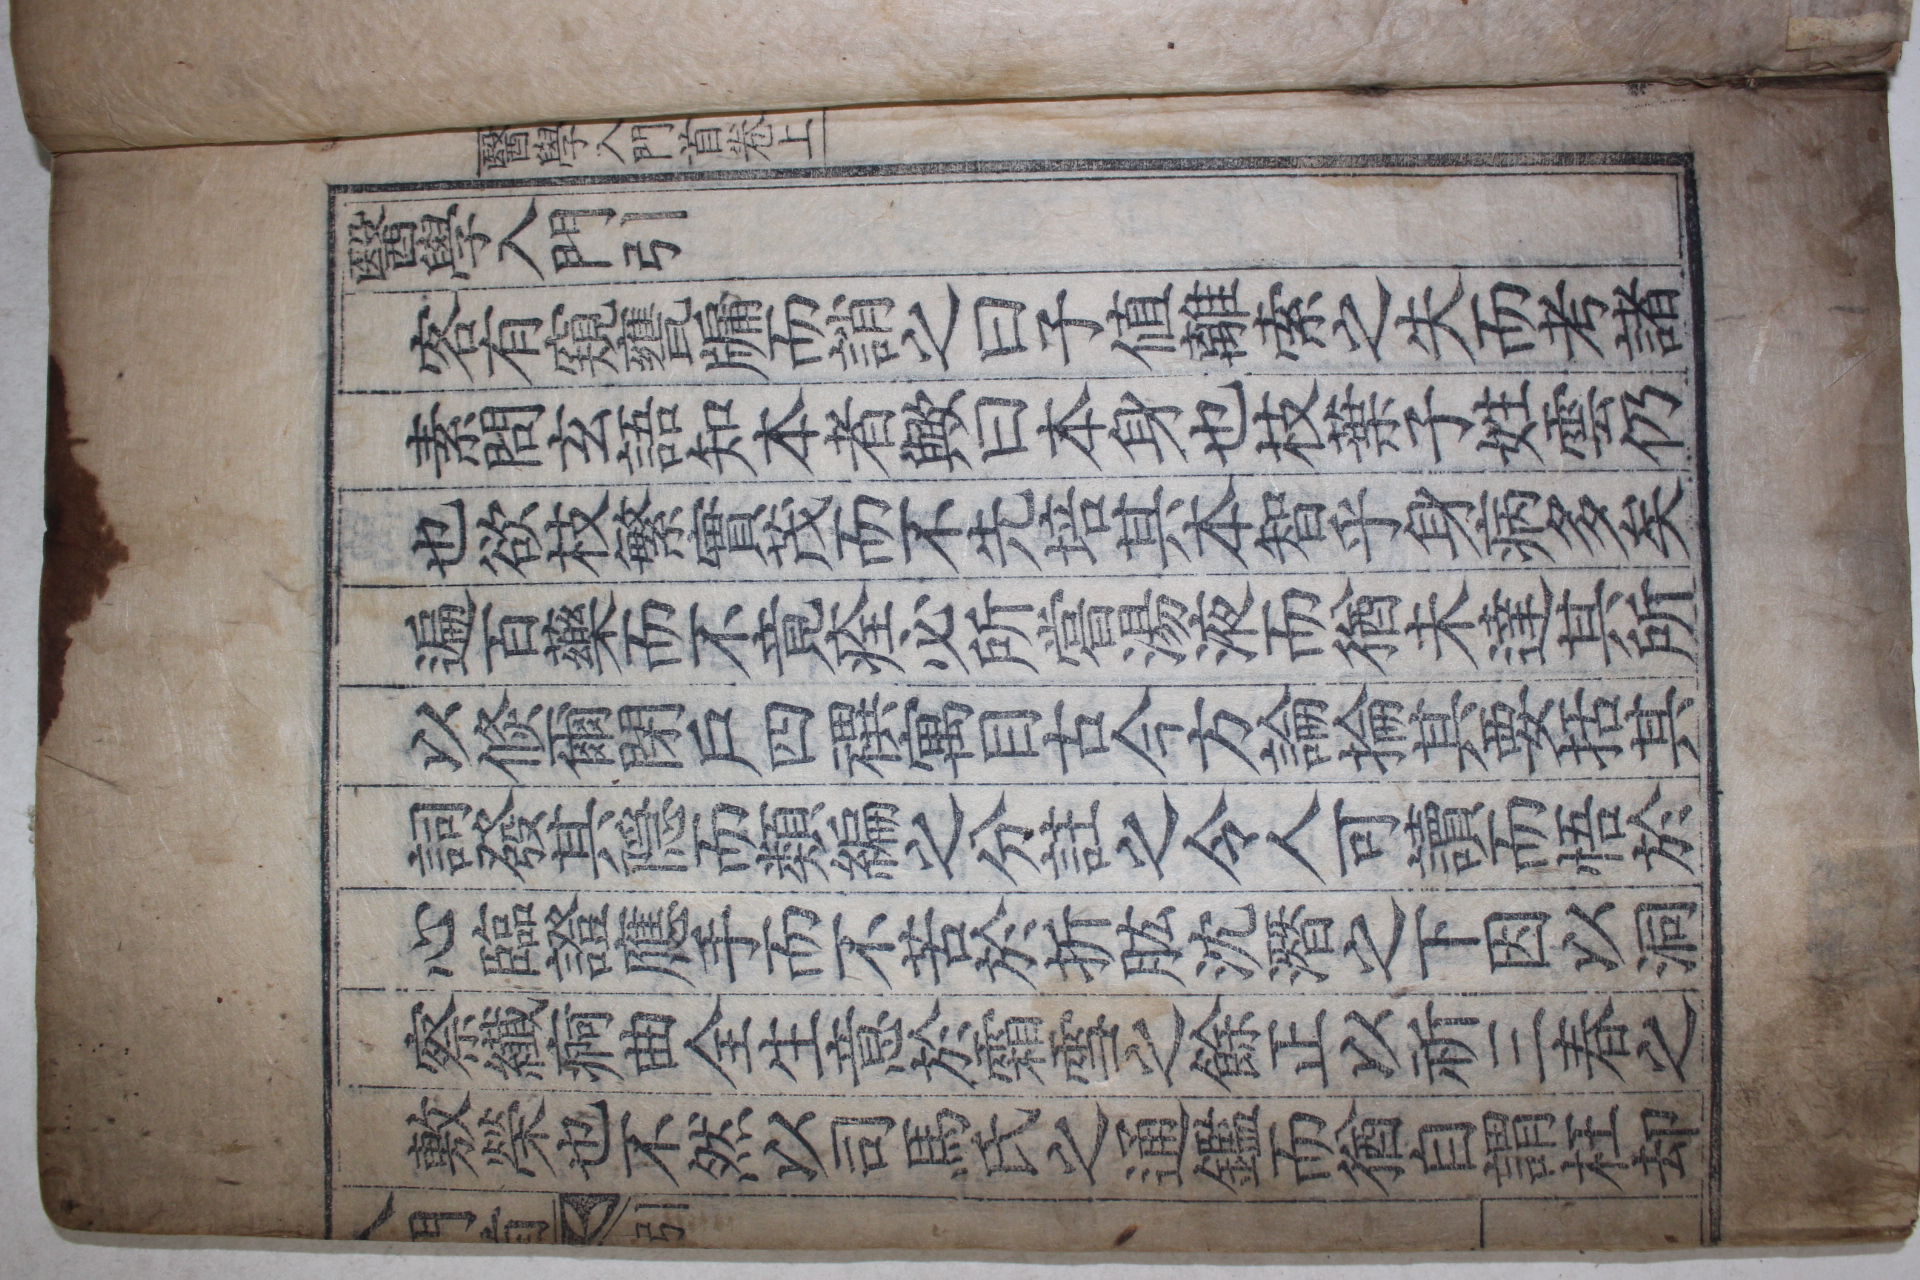 醫學入門首卷上
醫學入門引
客有窺甕牖而誚之曰子値離索之失而考諸
素問玄語知本者歟曰本身也枝葉子姓雲仍
也欲枝繁實茂而不先培其本智乎身病多矣
遍百藥而不竟痊必所嘗湯液而猶未達其所
以倐爾閉戶四禩寓目古今方論掄其要括其
詞發其隠而類編之分註之令人可讀而悟於
心臨證應手而不苦於折肱沈潛之下因以洞
察纖痾曲全生意於霜雪之餘正以祈三春之
敷榮也不然以司馬氏之通鑑而猶自謂枉却
入門首 引